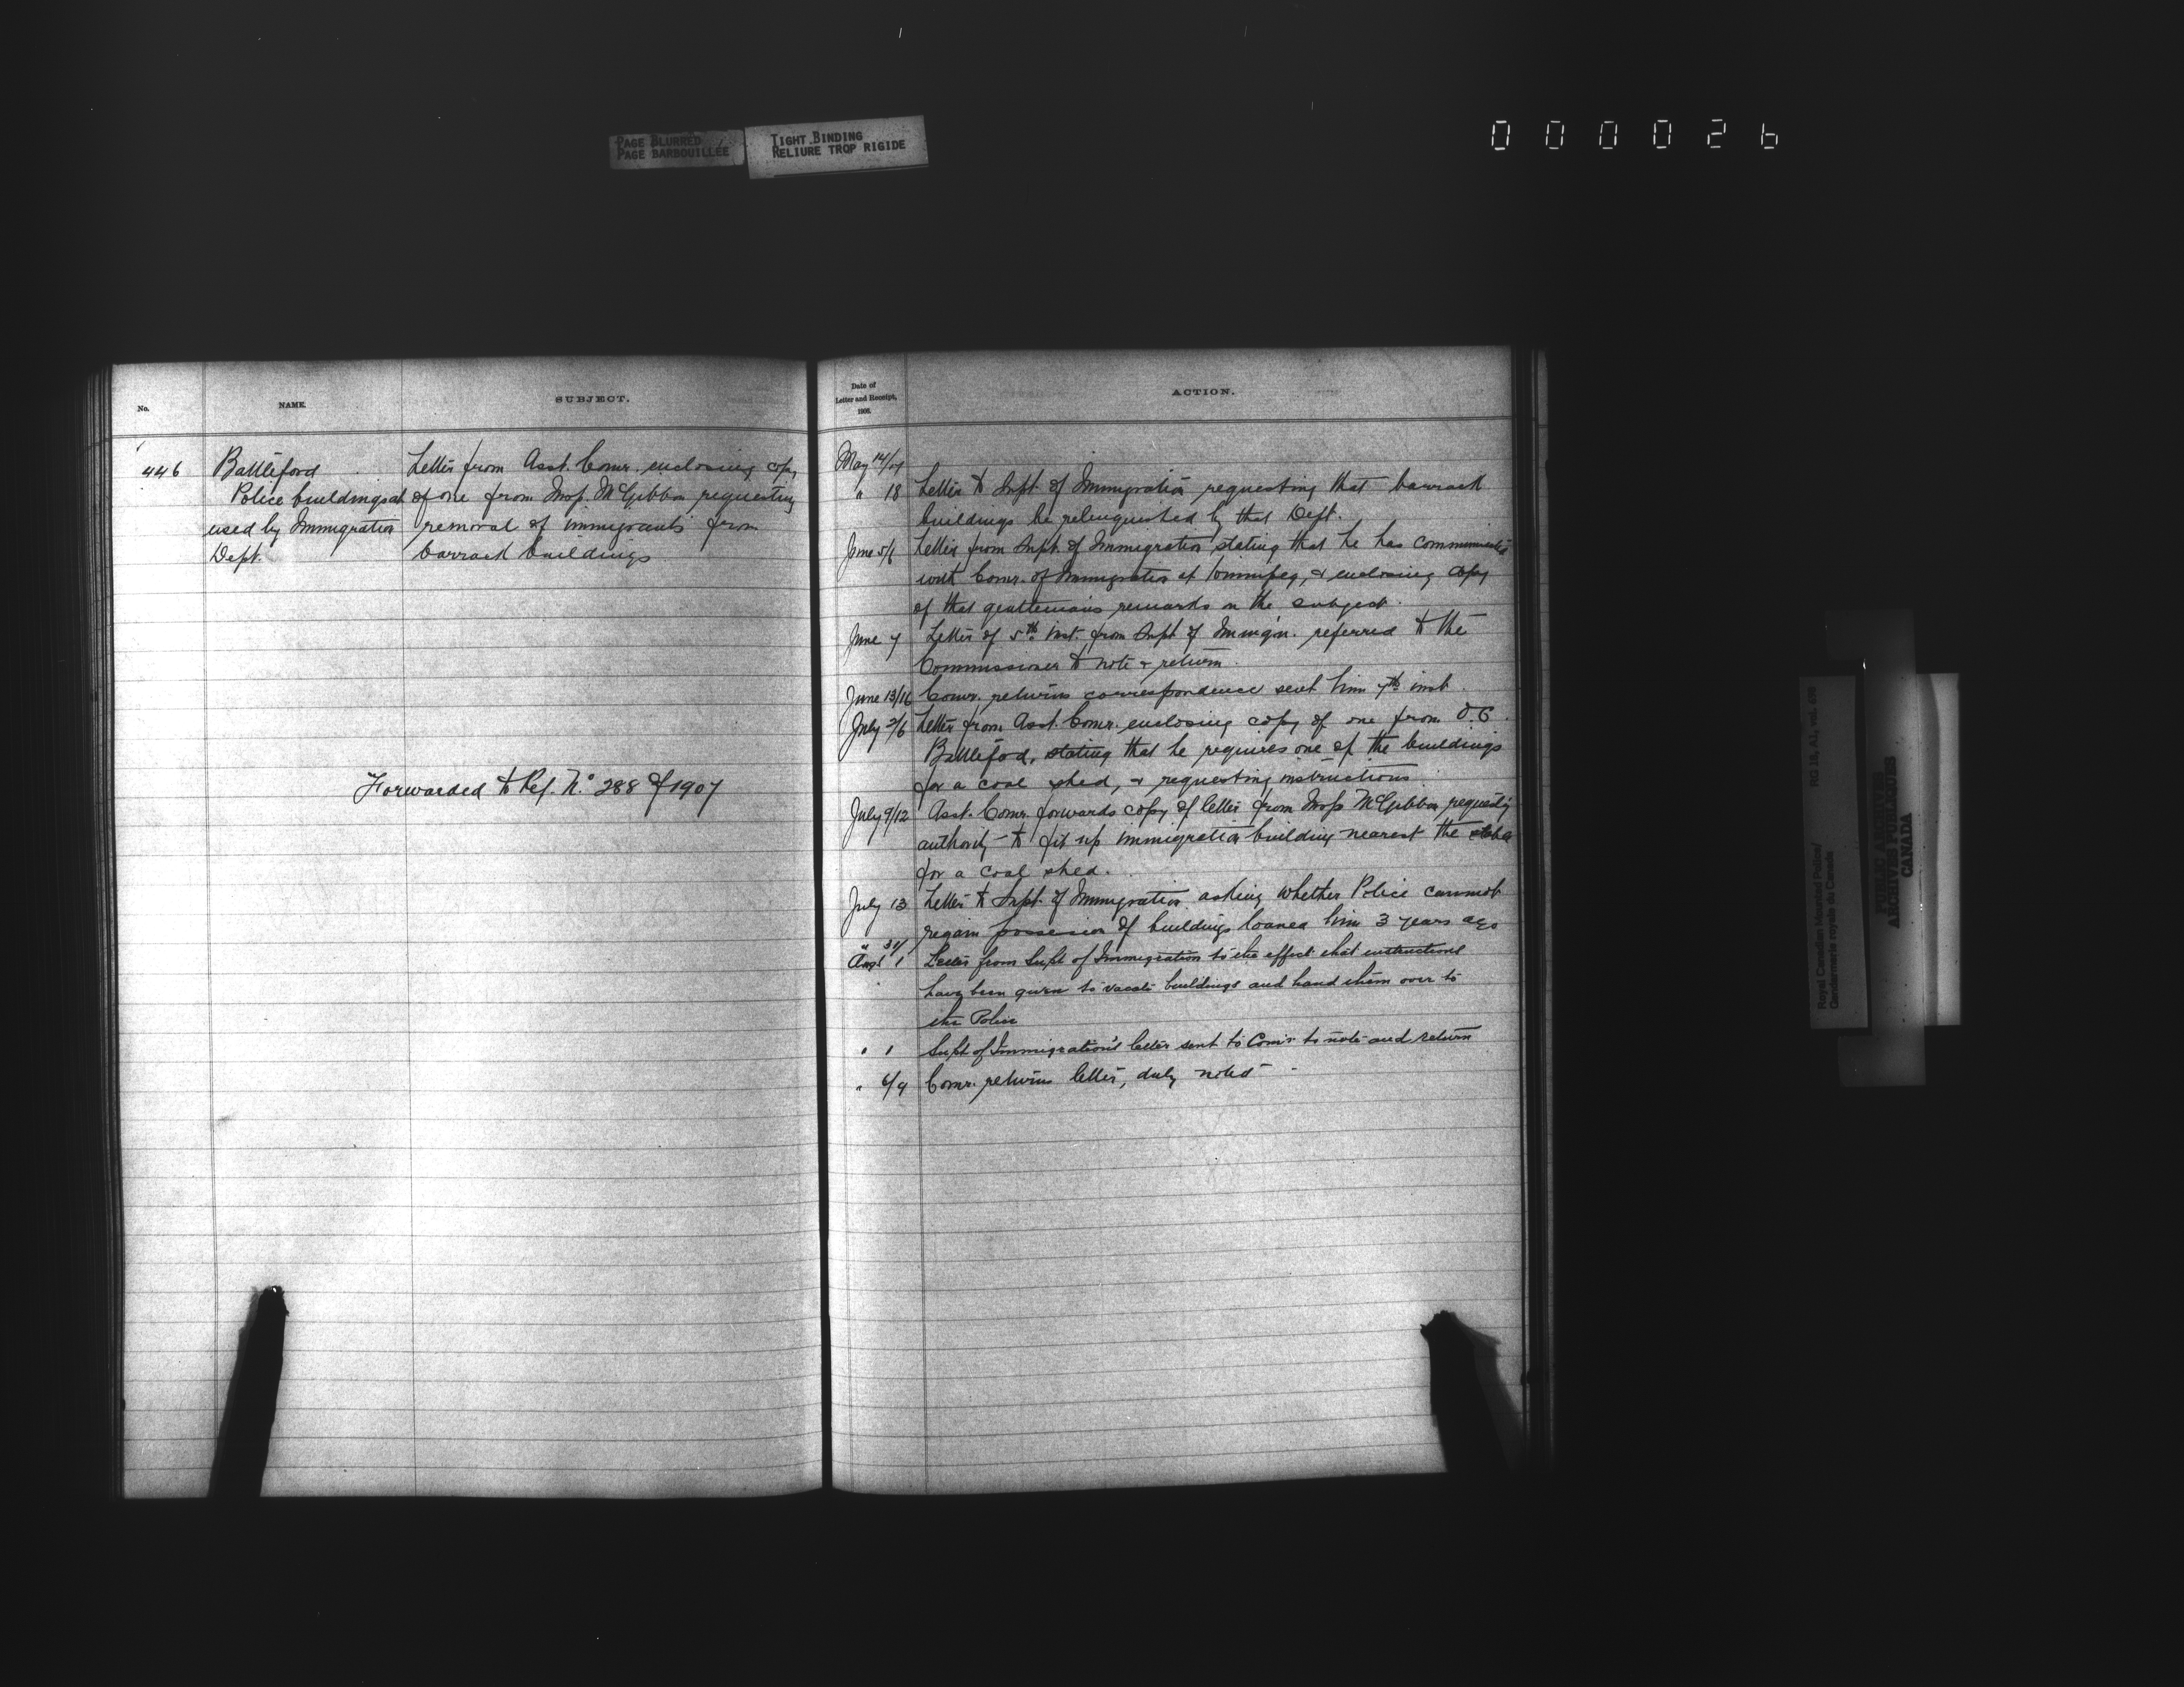 PAGE BLURRED
PAGE BARBOUILLÉE
TIGHT BINDING
RELIURE TROP RIGIDE
000026
No.
NAME.
SUBJECT.
446
Battleford
Police buildings at
used by Immigration
Dept.
Letter from Asst. Comr. enclosing copy
of one from Insp. McGibbon requesting
removal of immigrants from
barrack buildings
Forwarded to Ref. No. 288 of 1907
Date of
Letter and Receipt,
1906.
ACTION.
May 14/17
" 18 Letter to Supt. of Immigration requesting that barrack
buildings be relinquished by that Dept.
June 5/6 Letter from Supt. of Immigration stating that he has communicated
with Comr. of Immigration at Winnipeg, & enclosing copy
of that gentleman's remarks on the subject.
June 7 Letter of 5th inst. from Supt of Immig'n. referred to the
Commissioner to note & return.
June 13/16 Comr. returns correspondence sent him 7th inst.
July 2/6 Letter from Asst. Comr. enclosing copy of one from O.C.
Battleford, stating that he requires one of the buildings
for a coal shed, & requesting instructions
July 9/12 Asst. Comr. forwards copy of letter from Insp McGibbon requesting
authority to fit up immigration building nearest the stable
for a coal shed.
July 13 Letter to Supt. of Immigration asking whether Police cannot
regain possession of buildings loaned him 3 years ago
" 31/
Aug 1 Letter from Supt of Immigration to the effect that instructions
have been given to vacate buildings and hand them over to
the Police
" 1 Supt of Immigration's letter sent to Com'r to note and return
" 6/9 Comr. returns letter, duly noted
Royal Canadian Mounted Police/
Gendarmerie royale du Canada
RG 18, A1, vol. 678
PUBLIC ARCHIVES
ARCHIVES PUBLIQUES
CANADA